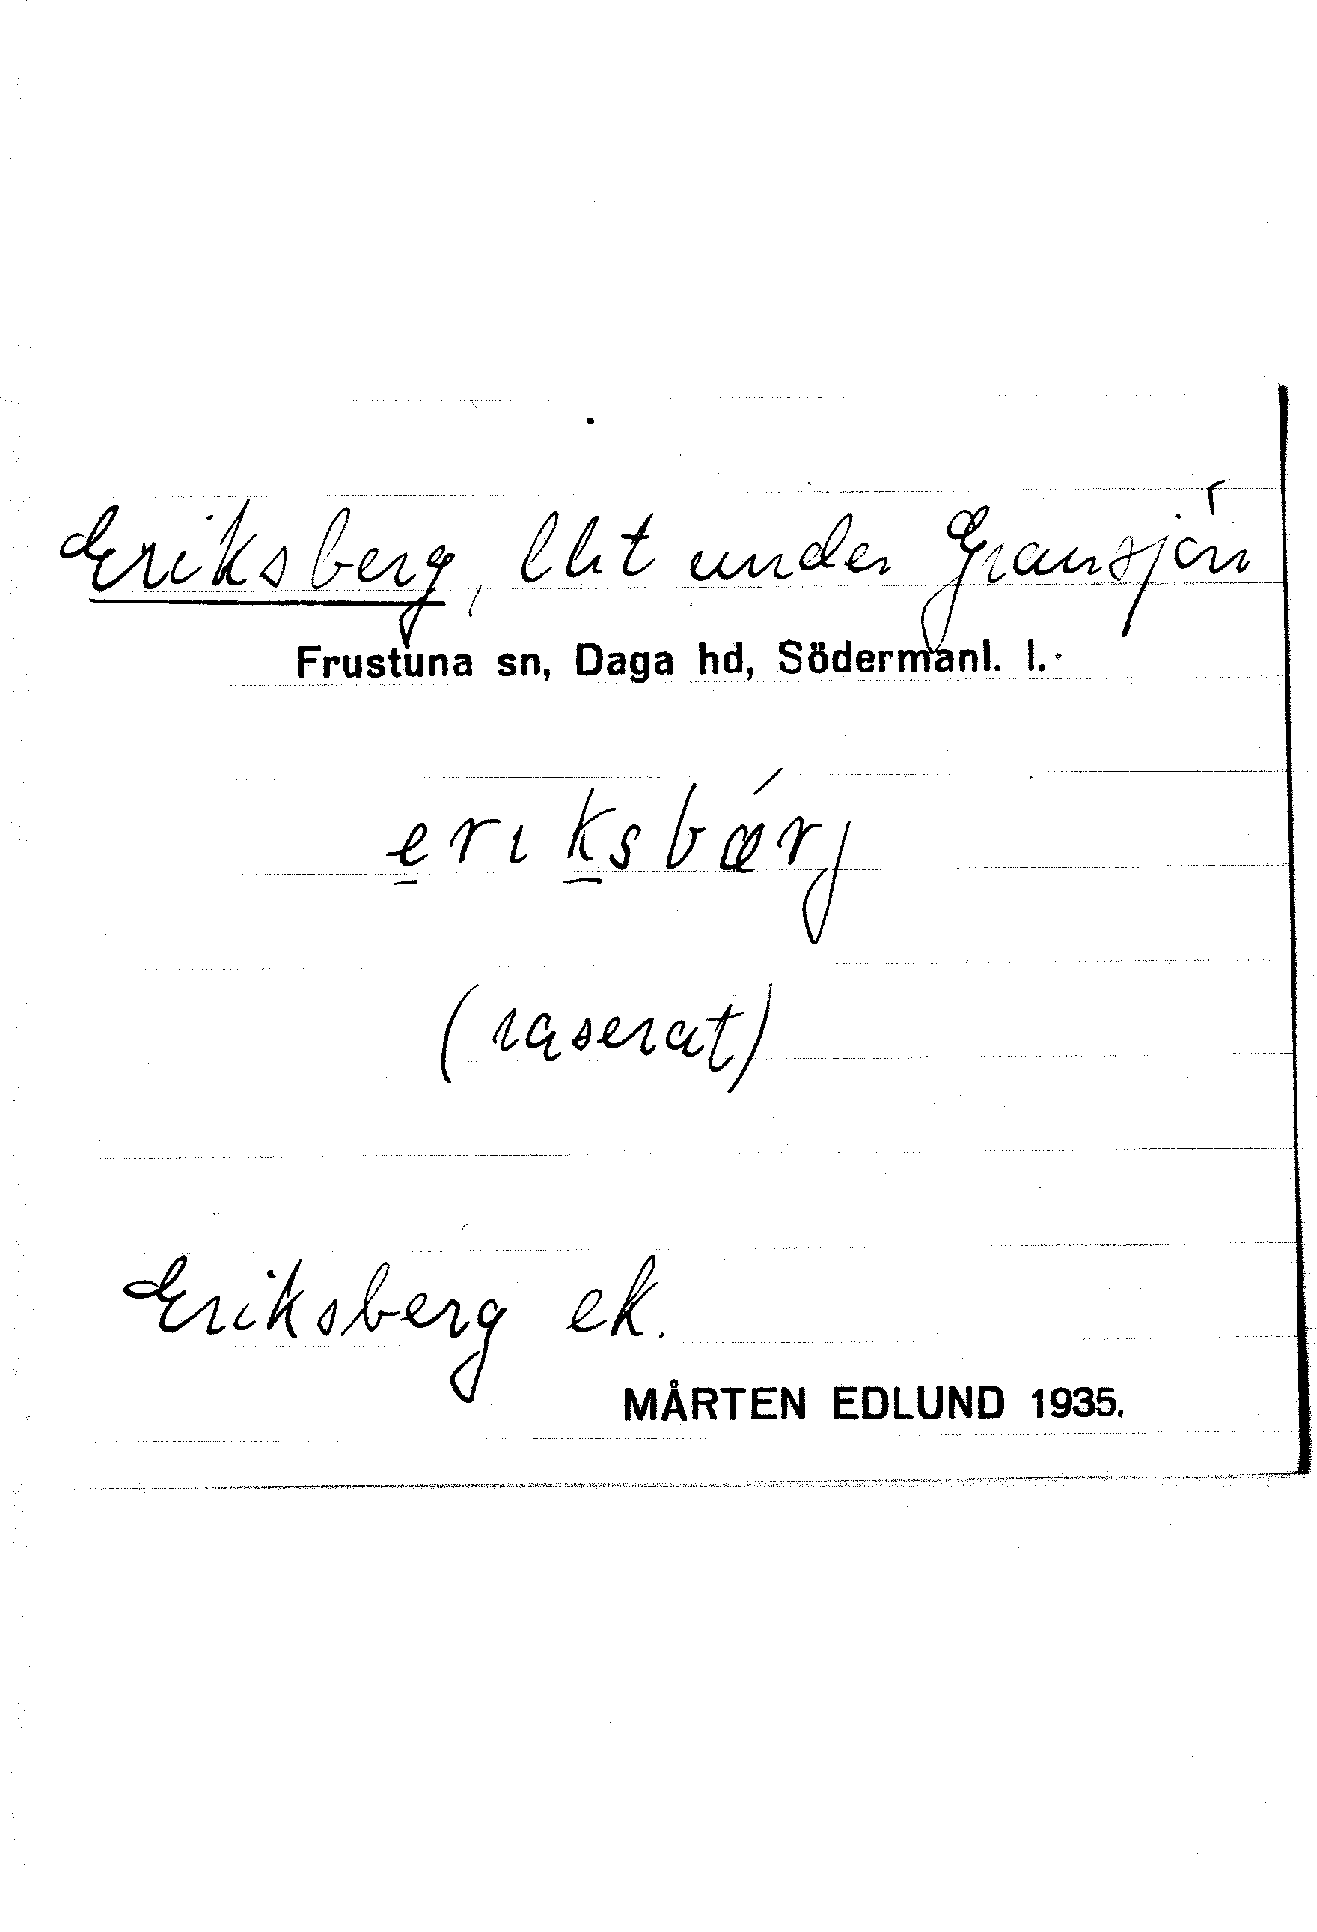 Eriksberg, lht under Gransjön
Frustuna sn, Daga hd, Södermanl. l.
eriksbärj
(raserat)
Eriksberg ek.
MÅRTEN EDLUND 1935.